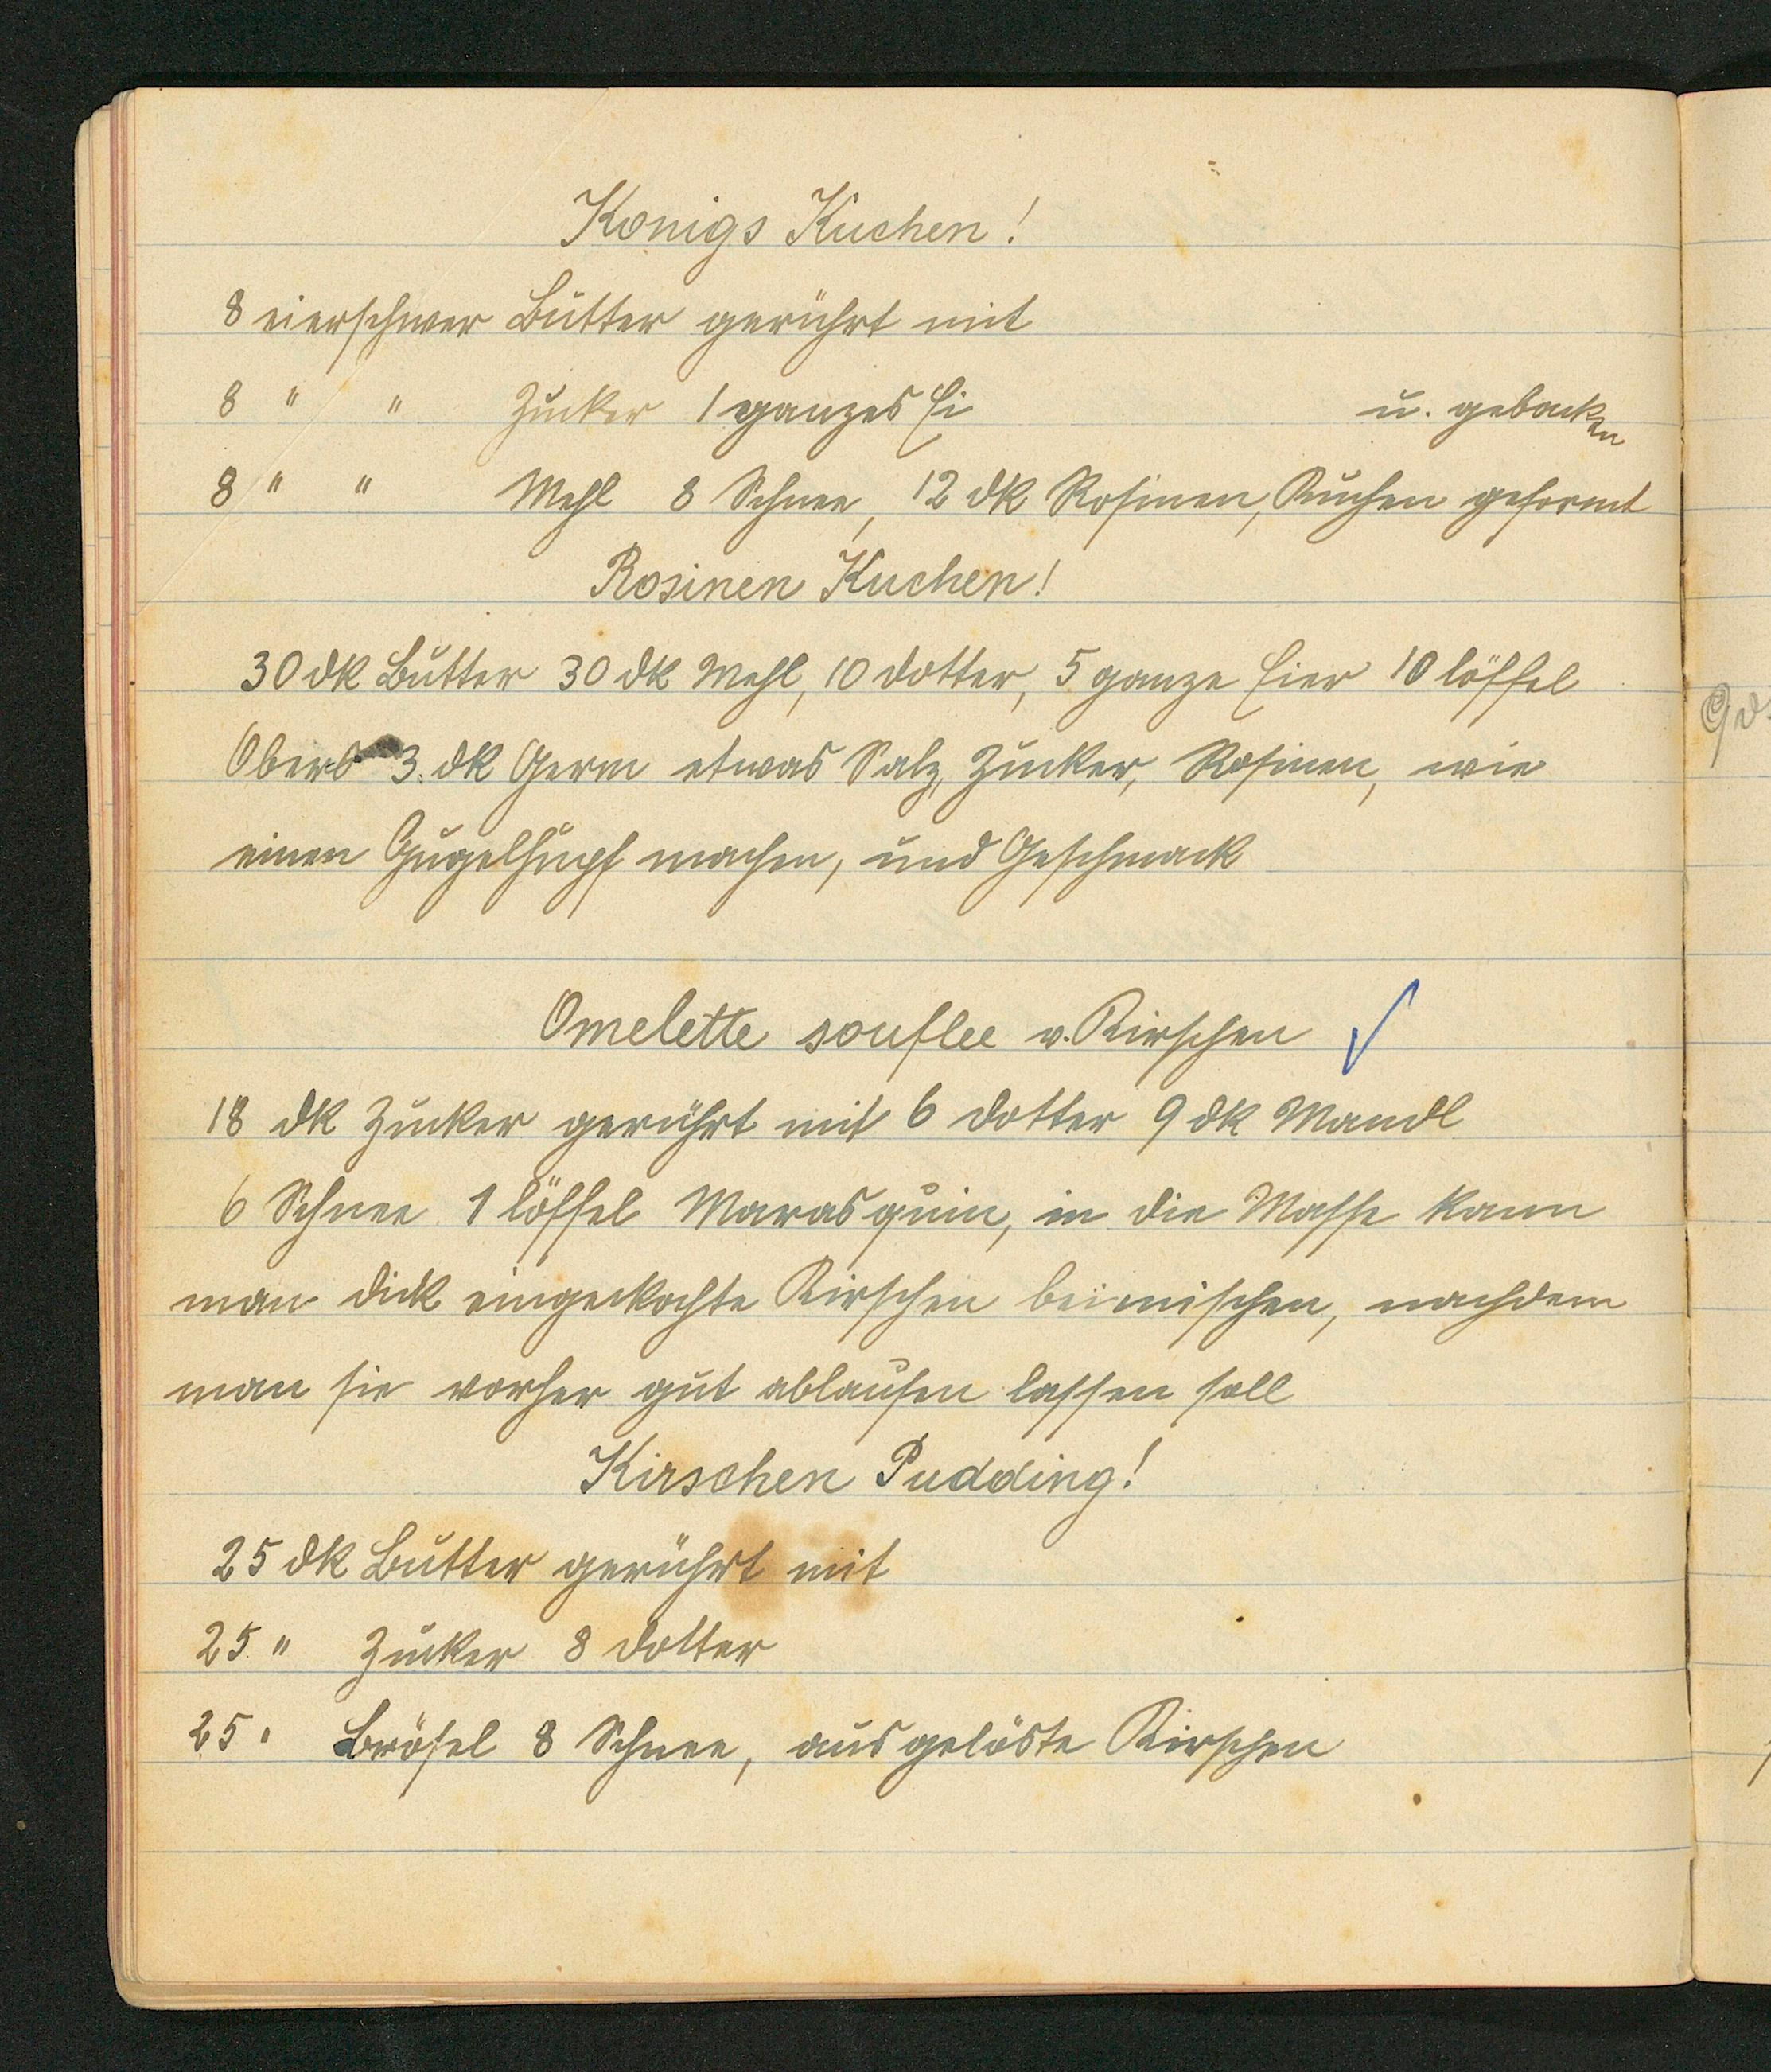 Konigs Kuchen!
8 eierschwer Butter gerührt mit
8 " " Zucker 1 ganzes Ei u. gebacken
8 " " Mehl 8 Schnee, 12 dk Rosinen, Kuchen geformt
Rosinen Kuchen!
30 dk Butter 30 dk Mehl, 10 dotter, 5 ganze Eier 10 löffel
Obers 3. dk Germ etwas Salz, Zucker, Rosinen, wie
einen Gugelhupf machen, und Geschmack
Omelette souflee v. Kirschen ✓
18 dk Zucker gerührt mit 6 dotter 9 dk Mandl
6 Schnee 1 löffel Marasquin, in die Masse kann
man dick eingekochte Kirschen beimischen, nachdem
man sie vorher gut ablaufen lassen soll
Kirschen Pudding!
25 dk Butter gerührt mit
25 " Zucker 8 dotter
25 " Brösel 8 Schnee, ausgelöste Kirschen